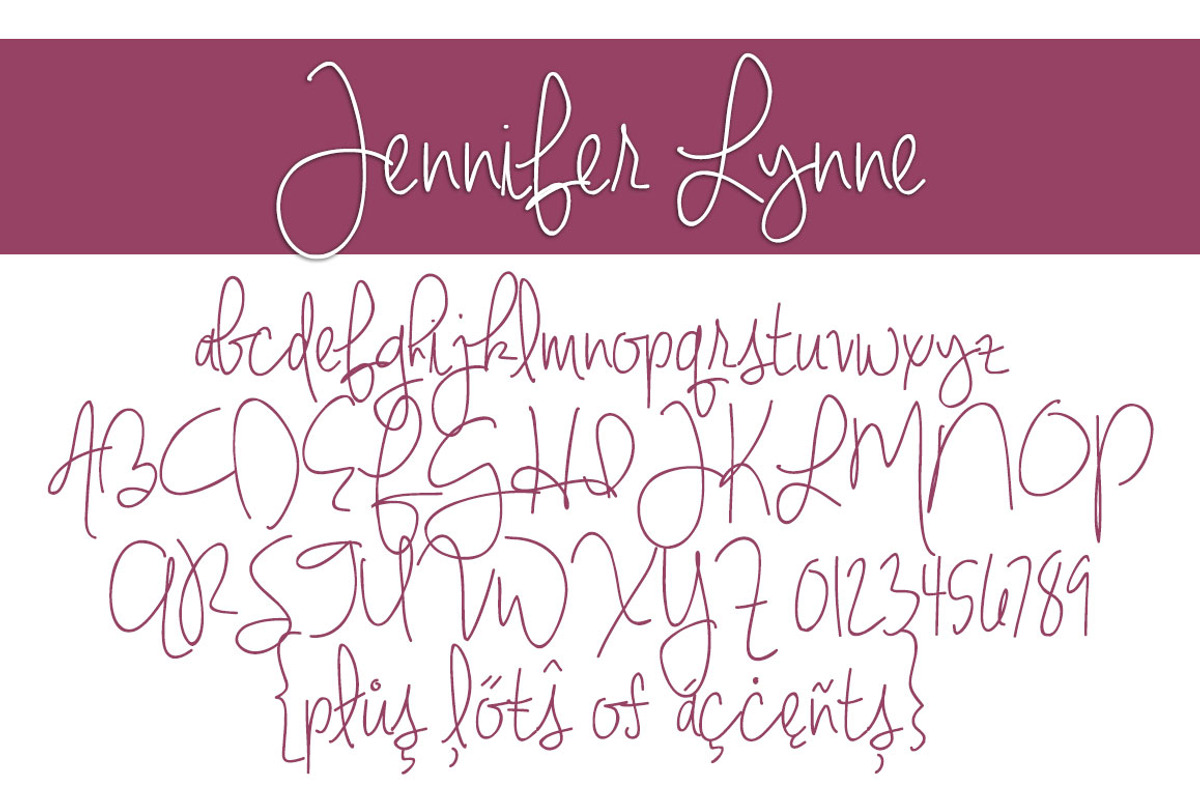 Jennifer Lynne
abcdefghijklmnopqrstuvwxyz
ABCDEFGHIJKLMNOP
QRSTUVWXYZ 0123456789
{płůş ļőŧŝ of áçċęñtș}